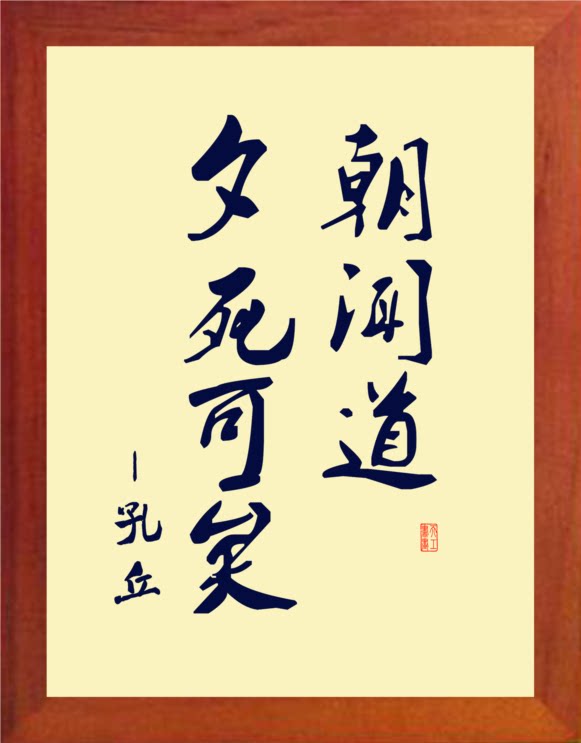 朝闻道
夕死可矣
—孔丘